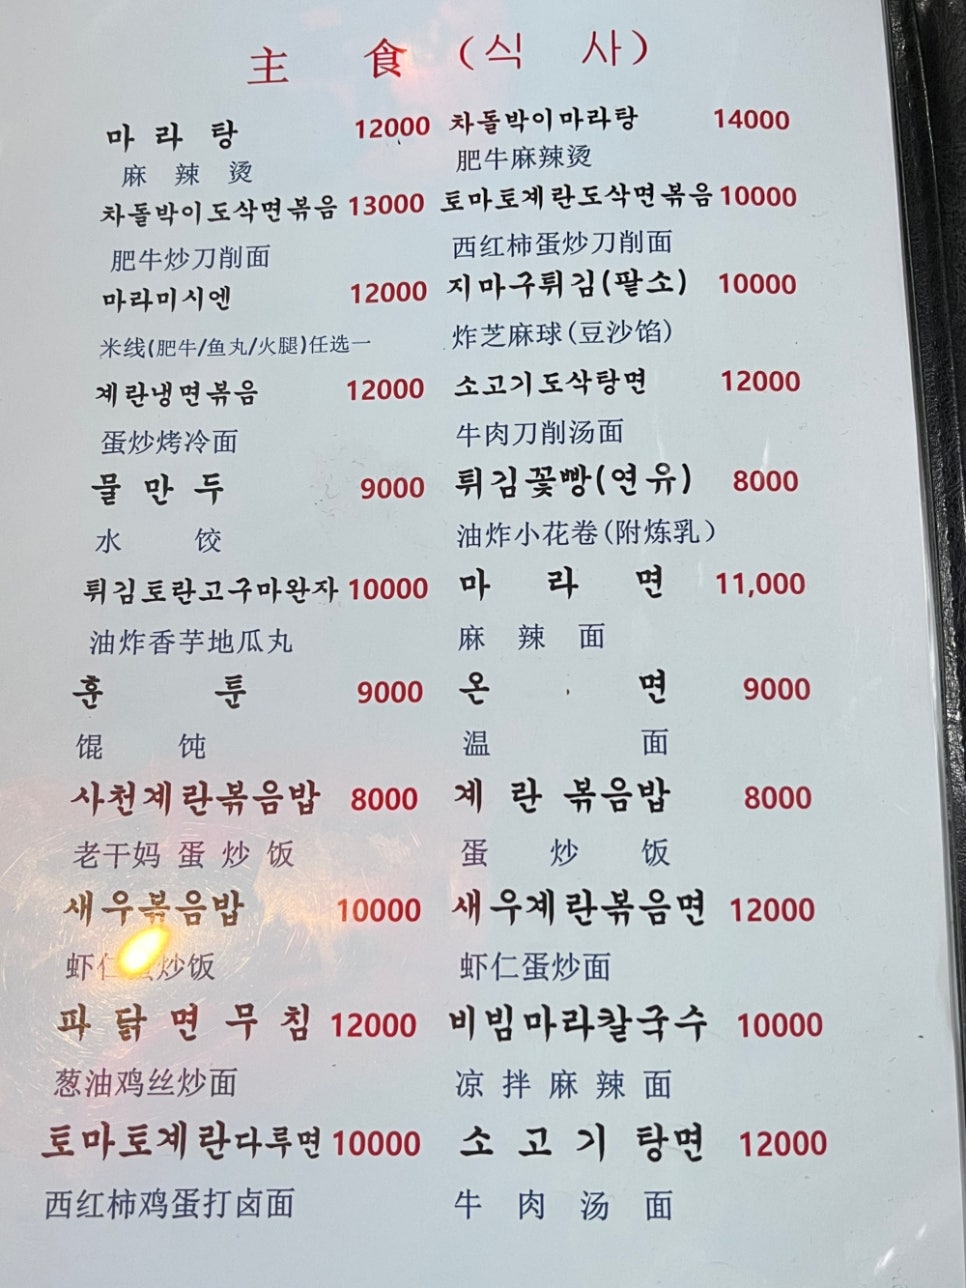 主 食 (식 사)
마 라 탕 12000 차돌박이마라탕 14000
麻 辣 烫 肥牛麻辣烫
차돌박이도삭면볶음 13000 토마토계란도삭면볶음 10000
肥牛炒刀削面 西红柿蛋炒刀削面
마라미시엔 12000 지마구튀김(팥소) 10000
米线(肥牛/鱼丸/火腿)任选一 炸芝麻球(豆沙馅)
계란냉면볶음 12000 소고기도삭탕면 12000
蛋炒烤冷面 牛肉刀削汤面
물 만 두 9000 튀김꽃빵(연유) 8000
水 饺 油炸小花卷(附炼乳)
튀김토란고구마완자 10000 마 라 면 11,000
油炸香芋地瓜丸 麻 辣 面
훈 툰 9000 온 면 9000
馄 饨 温 面
사천계란볶음밥 8000 계 란 볶음밥 8000
老干妈 蛋 炒 饭 蛋 炒 饭
새우볶음밥 10000 새우계란볶음면 12000
虾仁蛋炒饭 虾仁蛋炒面
파 닭 면 무 침 12000 비빔마라칼국수 10000
葱油鸡丝炒面 凉 拌 麻 辣 面
토마토계란다루면 10000 소 고 기 탕면 12000
西红柿鸡蛋打卤面 牛 肉 汤 面